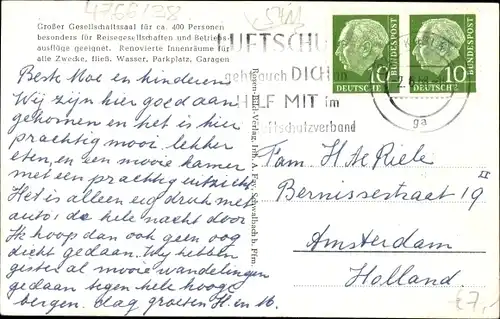 4766/38
5411
Großer Gesellschaftssaal für ca. 400 Personen
besonders für Reisegesellschaften und Betriebs-
ausflüge geeignet. Renovierte Innenräume für
alle Zwecke, fließ. Wasser, Parkplatz, Garagen
LUFTSCHU
geht auch DICH an
HILF MIT im
ftschutzverband
ga
10
DEUTSCHE
BUNDESPOST
10
DEUTSCHE
BUNDESPOST
Beste Moe en kinderen
Wij zijn hier goed aan
gekomen en het is hier
prachtig mooi. lekker
eten, en een mooie kamer
met een prachtig uitzicht
Het is alleen erg druk met
auto's de hele nacht door
Ik hoop dan ook geen oog
dicht gedaan. Wij hebben
gister al mooie wandelingen
gedaan tegen hele hooge
bergen. dag groeten H. en M.
Rosen-Bild-Verlag, Inh. A. Fay, Schwalbach b. Ffm.
Fam. H. te Riele
Bernissestraat 19 II
Amsterdam
Holland